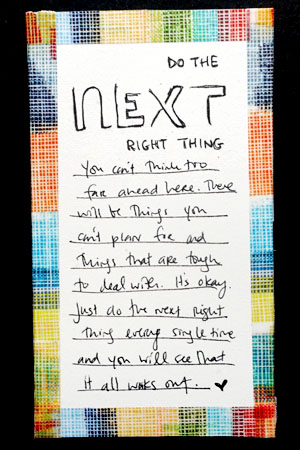 DO THE
NEXT
RIGHT THING
You can't think too
far ahead here. There
will be things you
can't plan for and
things that are tough
to deal with. It's okay.
Just do the next right
thing every single time
and you will see that
it all works out. ♥